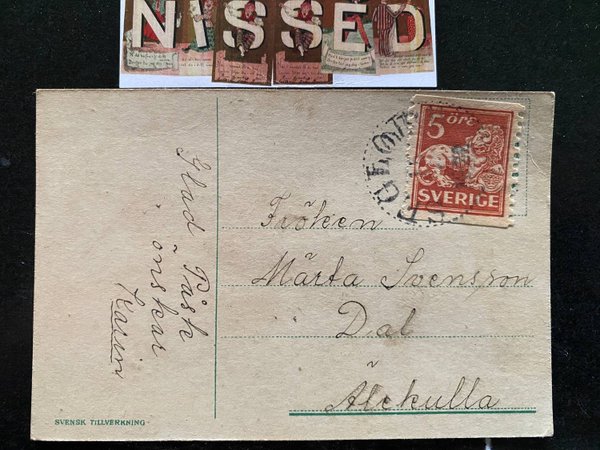 NISSED
Glad Påsk
önskar
Karin
5 ÖRE
SVERIGE
Fröken
Märta Svensson
Dal
Älekulla
SVENSK TILLVERKNING